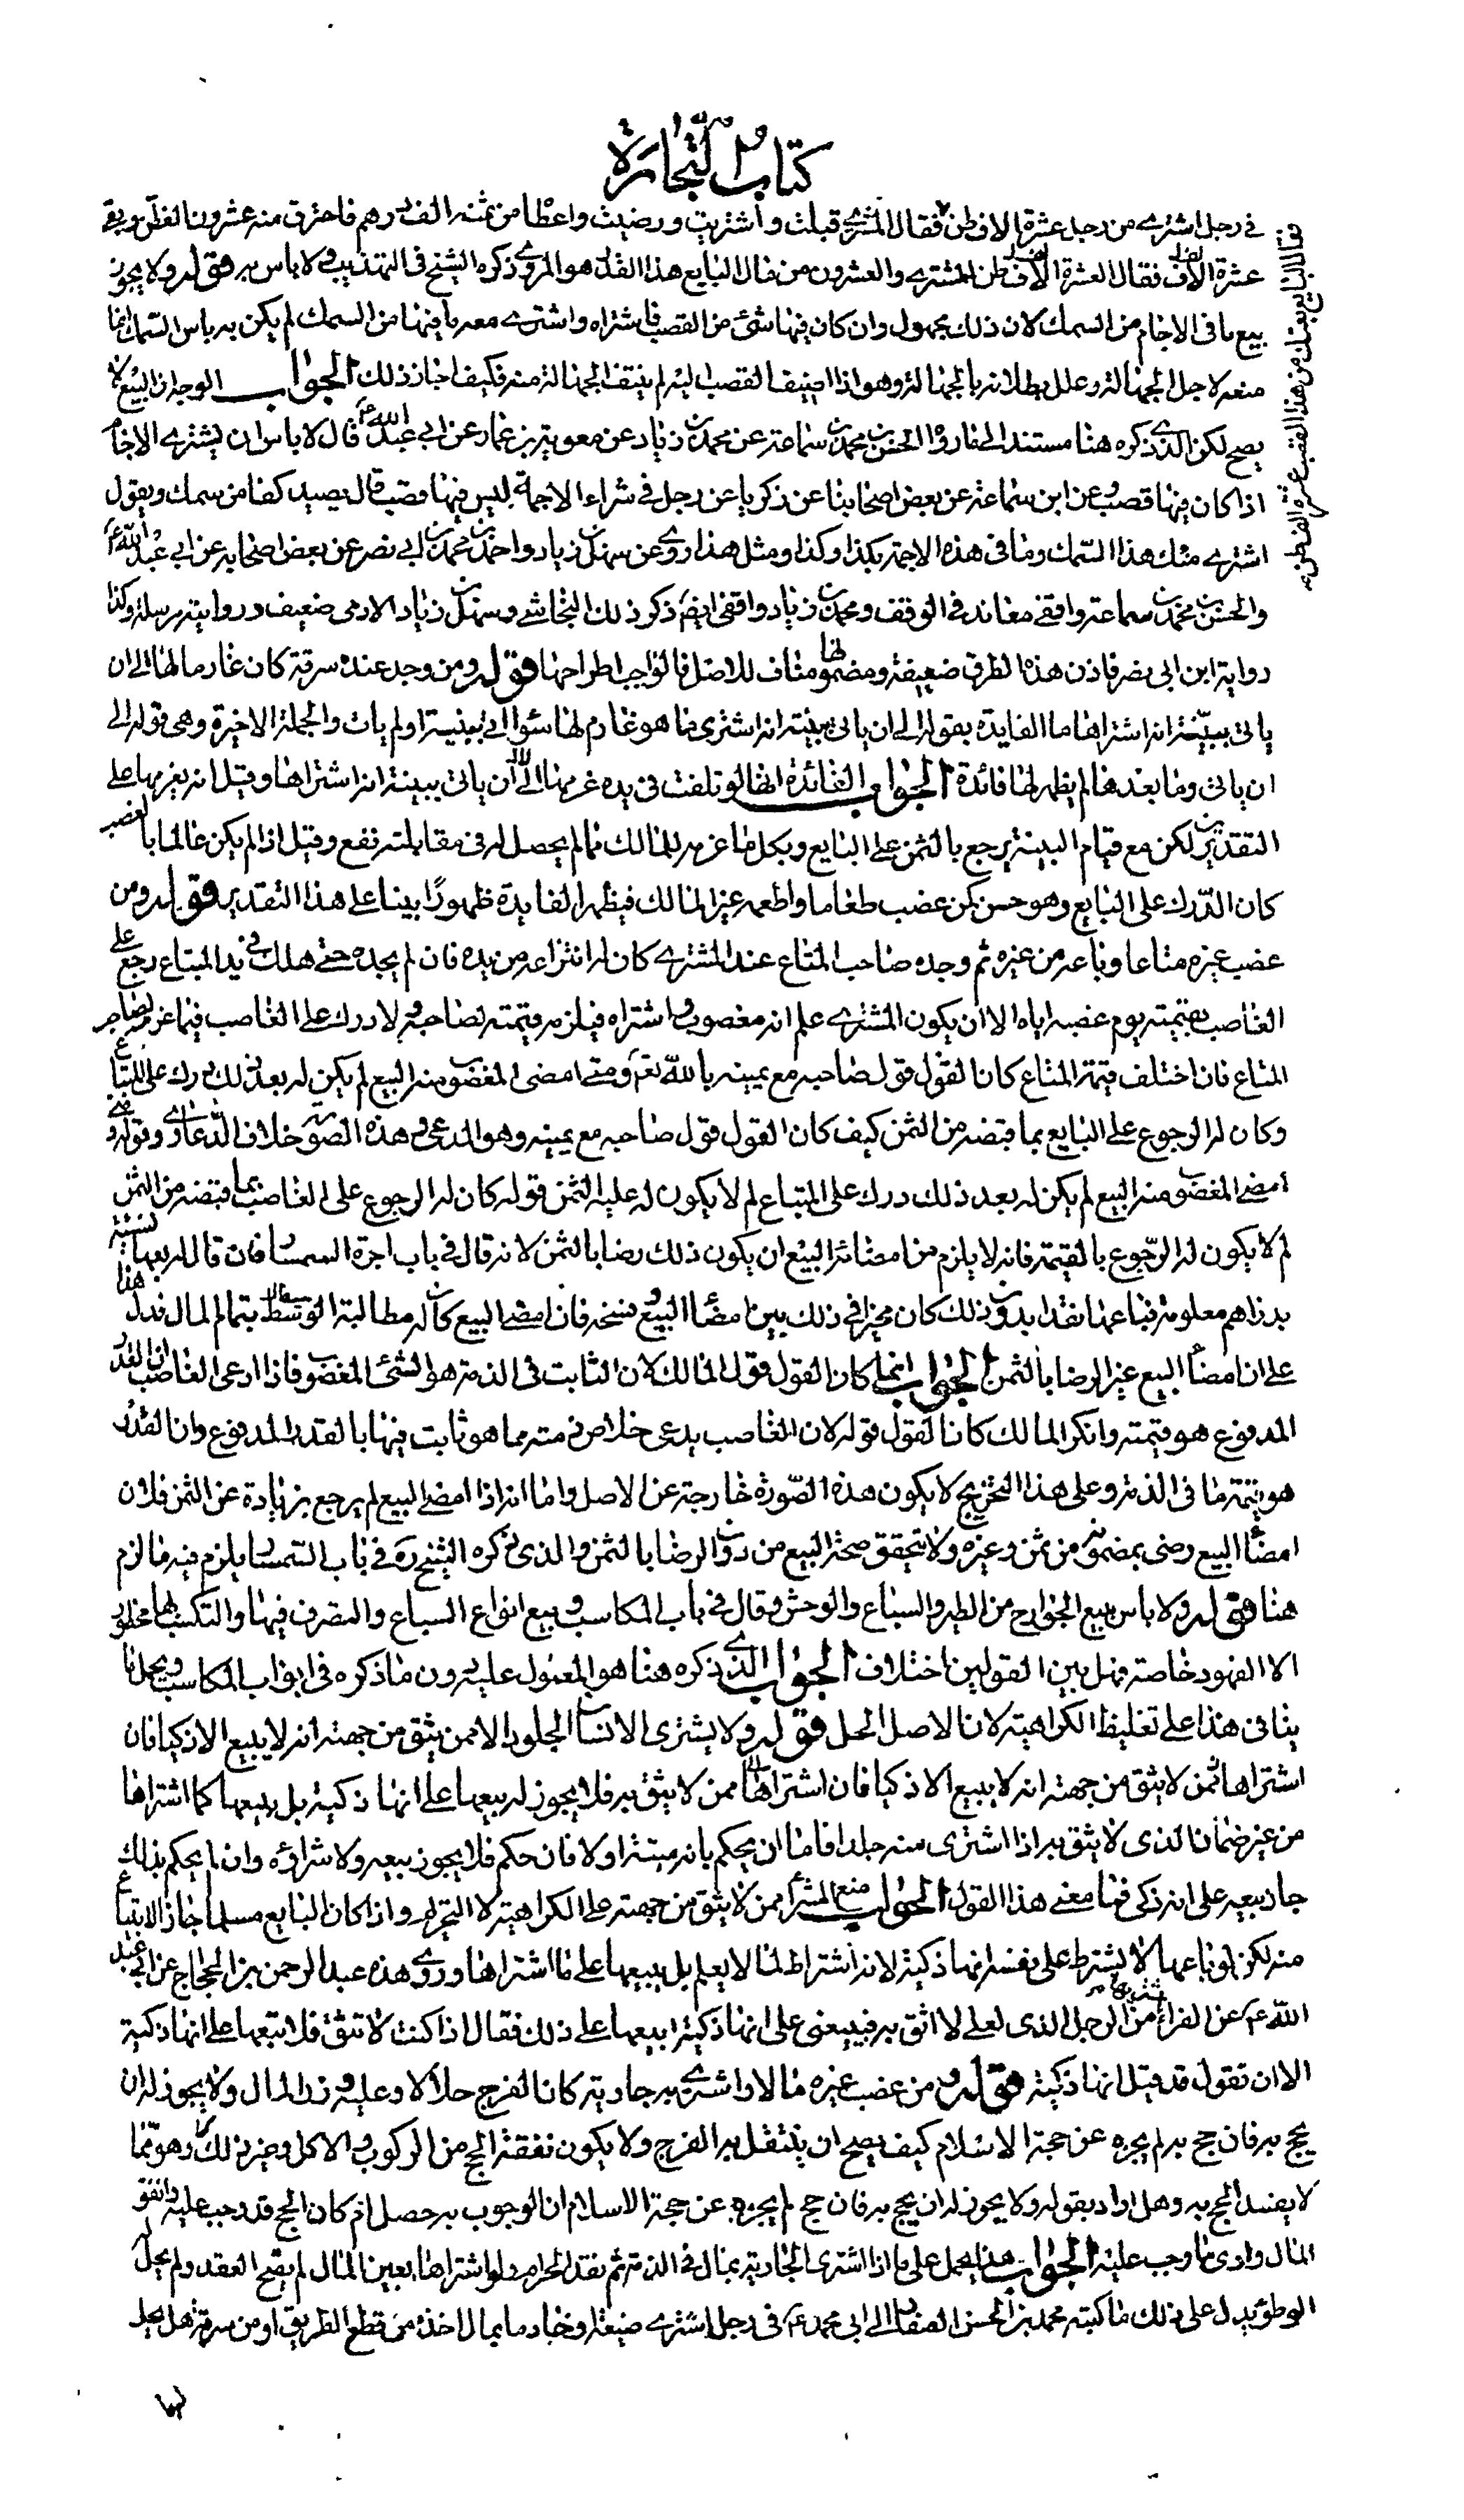 كتاب التجارة
في رجل اشترى من رجل عشرة الاف طن فقال المشترى قبلت واشتريت ورضيت واعطا من ثمنه الف درهم فاحترق منه عشرون الف طن وبقى
عشرة الاف فقال العشرة الاف طن للمشترى والعشرون من مال البايع هذا القدر هو المروى ذكره الشيخ في التهذيب ولا باس به قوله ولا يجوز
بيع ما فى الاجام من السمك لان ذلك مجهول وان كان فيها شئ من القصب فاشتراه واشترى معه ما فيها من السمك لم يكن به باس السمك انما
منعه لاجل الجهالة وعلل بطلانه بالجهالة وهو اذا اضيف القصب اليه لم ينتف الجهالة منه فكيف اجاز ذلك الجواب الوجه ان البيع لا
يصح لكن الذى ذكره هنا مستند الى ما رواه الحسن بن محمد بن سماعة عن محمد بن زياد عن معوية بن عمار عن ابي عبد الله ع قال لا باس ان يشترى الاجام
اذا كان فيها قصب وعن ابن سماعة عن بعض اصحابنا عن زكريا عن رجل في شراء الاجمة ليس فيها قصب قال يصيد كفا من سمك ويقول
اشترى منك هذا السمك وما فى هذه الاجمة بكذا وكذا ومثل هذا روى عن سهل بن زياد واحمد بن محمد بن ابي نصر عن بعض اصحابه عن ابي عبد الله ع
والحسن بن محمد بن سماعة واقفى معاند في الوقف ومحمد بن زياد واقفى ايضا ذكر ذلك النجاشى وسهل بن زياد الادمى ضعيف وروايته مرسلة وكذا
رواية ابن ابي نصر فاذن هذه الطرق ضعيفة ومضمونها مناف للاصل فالواجب اطراحها قوله ومن وجد عنده سرقة كان غارما لها الى ان
ياتى ببينة انه اشتراها ما الفايدة بقوله الى ان ياتى ببينة انه اشترى فما هو غارم لها سواء اتى ببينة او لم يات والجملة الاخيرة وهى قوله الى
ان ياتى وما بعدها لم يظهر لها فائدة الجواب الفائدة انها لو تلفت فى يده غرمها الى ان ياتى ببينة انه اشتراها وقيل انه يغرمها على
التقديرين لكن مع قيام البينة يرجع بالثمن على البايع وبكل ما غرمه للمالك مما لم يحصل له في مقابلته نفع وقيل اذا لم يكن عالما بالغصب
كان الدرك على البايع وهو حسن كمن غصب طعاما واطعمه غير المالك فيظهر الفايدة ظهورا بينا على هذا التقدير قوله ومن
غصب غيره متاعا وباعه من غيره ثم وجده صاحب المتاع عند المشترى كان له انتزاعه من يده فان لم يجده حتى هلك في يد المبتاع رجع على
الغاصب بقيمته يوم غصبه اياه الا ان يكون المشترى علم انه مغصوب واشتراه فيلزمه قيمته لصاحبه ولا درك على الغاصب فيما غرمه لصاحب
المتاع فان اختلف قيمة المتاع كان القول قول صاحبه مع يمينه بالله تعالى ومتى امضى المغصوب منه البيع لم يكن له بعد ذلك درك على المبتاع
وكان له الرجوع على البايع بما قبضه من الثمن كيف كان القول قول صاحبه مع يمينه وهو المدعى وهذه الصورة خلاف الدعاوى وقوله ومتى
امضى المغصوب منه البيع لم يكن له بعد ذلك درك على المبتاع لم لا يكون له عليه الثمن قوله كان له الرجوع على الغاصب بما قبضه من الثمن
لم لا يكون له الرجوع بالقيمة فانه لا يلزم من امضائه البيع ان يكون ذلك رضا بالثمن لانه قال في باب اجرة السمسار فان قال له بعها نسيئة
بدراهم معلومة فباعها نقدا بدون ذلك كان مخيرا في ذلك بين امضاء البيع وفسخه فان امضى البيع كان له مطالبة الواسطة بتمام المال فدل هذا
على ان امضاء البيع غير الرضا بالثمن الجواب انما كان القول قول المالك لان الثابت فى الذمة هو الشئ المغصوب فاذا ادعى الغاصب ان القدر
المدفوع هو قيمته وانكر المالك كان القول قوله لان الغاصب يدعى خلاص ذمته مما هو ثابت فيها بالقدر المدفوع وان القدر
هو تتمة ما فى الذمة وعلى هذا التخريج لا يكون هذه الصورة خارجة عن الاصل واما انه اذا امضى البيع لم يرجع بزيادة عن الثمن فلان
امضاء البيع رضى بمضمونه من ثمن وغيره ولا يتحقق صحة البيع من دون الرضا بالثمن والذى ذكره الشيخ ره في باب السمسار يلزم فيه ما لزم
هنا قوله ولا باس ببيع الجوارح من الطير والسباع والوحش وقال في باب المكاسب وبيع انواع السباع والتصرف فيها والتكسب بها محظور
الا الفهود خاصة فهل بين القولين اختلاف الجواب الذى ذكره هنا هو المعول عليه دون ما ذكره فى ابواب المكاسب ويحمل ما
ينافى هذا على تغليظ الكراهية لان الاصل الحل قوله ولا يشترى الانسان الجلود الا ممن يثق من جهته انه لا يبيع الا ذكيا فان
اشتراها ممن لا يثق من جهته انه لا يبيع الا ذكيا فان اشتراها ممن لا يثق به فلا يجوز له بيعها على انها ذكية بل يبيعها كما اشتراها
من غير ضمان الذى لا يثق به اذا اشترى منه جلدا فاما ان يحكم بانه ميتة او لا فان حكم فلا يجوز بيعه ولا شراؤه وان لم يحكم بذلك
جاز بيعه على انه ذكى فما معنى هذا القول الجواب منع الشراء ممن لا يثق من جهته على الكراهية لا التحريم واذا كان البايع مسلما جاز الابتياع
منه لكن لو باعها لا يشترط على نفسه انها ذكية لانه اشتراط لما لا يعلم بل يبيعها على ما اشتراها وروى هذه عبد الرحمن بن الحجاج عن ابي عبد
الله ع عن الفراء نشتريها من الرجل الذى لعلى لا اثق به فيبيعنى على انها ذكية ابيعها على ذلك فقال اذا كنت لا تثق فلا تبعها على انها ذكية
الا ان تقول قد قيل انها ذكية قوله ومن غصب غيره مالا واشترى به جارية كان الفرج حلالا وعليه وزر المال ولا يجوز له ان
يحج به فان حج به لم يجزه عن حجة الاسلام كيف يصح ان ينتقل به الفرج ولا يكون نفقة الحج من الركوب والاكل وغير ذلك وهو مما
لا يفسد الحج به وهل اراد بقوله ولا يجوز له ان يحج به فان حج لم يجزه عن حجة الاسلام ان الوجوب به حصل ام كان الحج قد وجب عليه وانفق
المال وادى ما وجب عليه الجواب هذا يحمل على ما اذا اشترى الجارية بمال في الذمة ثم نقد الحرام ولو اشتراها بعين المال لم يصح العقد ولم يحل
الوطؤ يدل على ذلك ما كتبه محمد بن الحسن الصفار الى ابي محمد ع فى رجل اشترى ضيعة او خادما بمال اخذه من قطع الطريق او من سرقة هل يحل
فقال البايع بعتك من هذا القصب عشرة الف طن